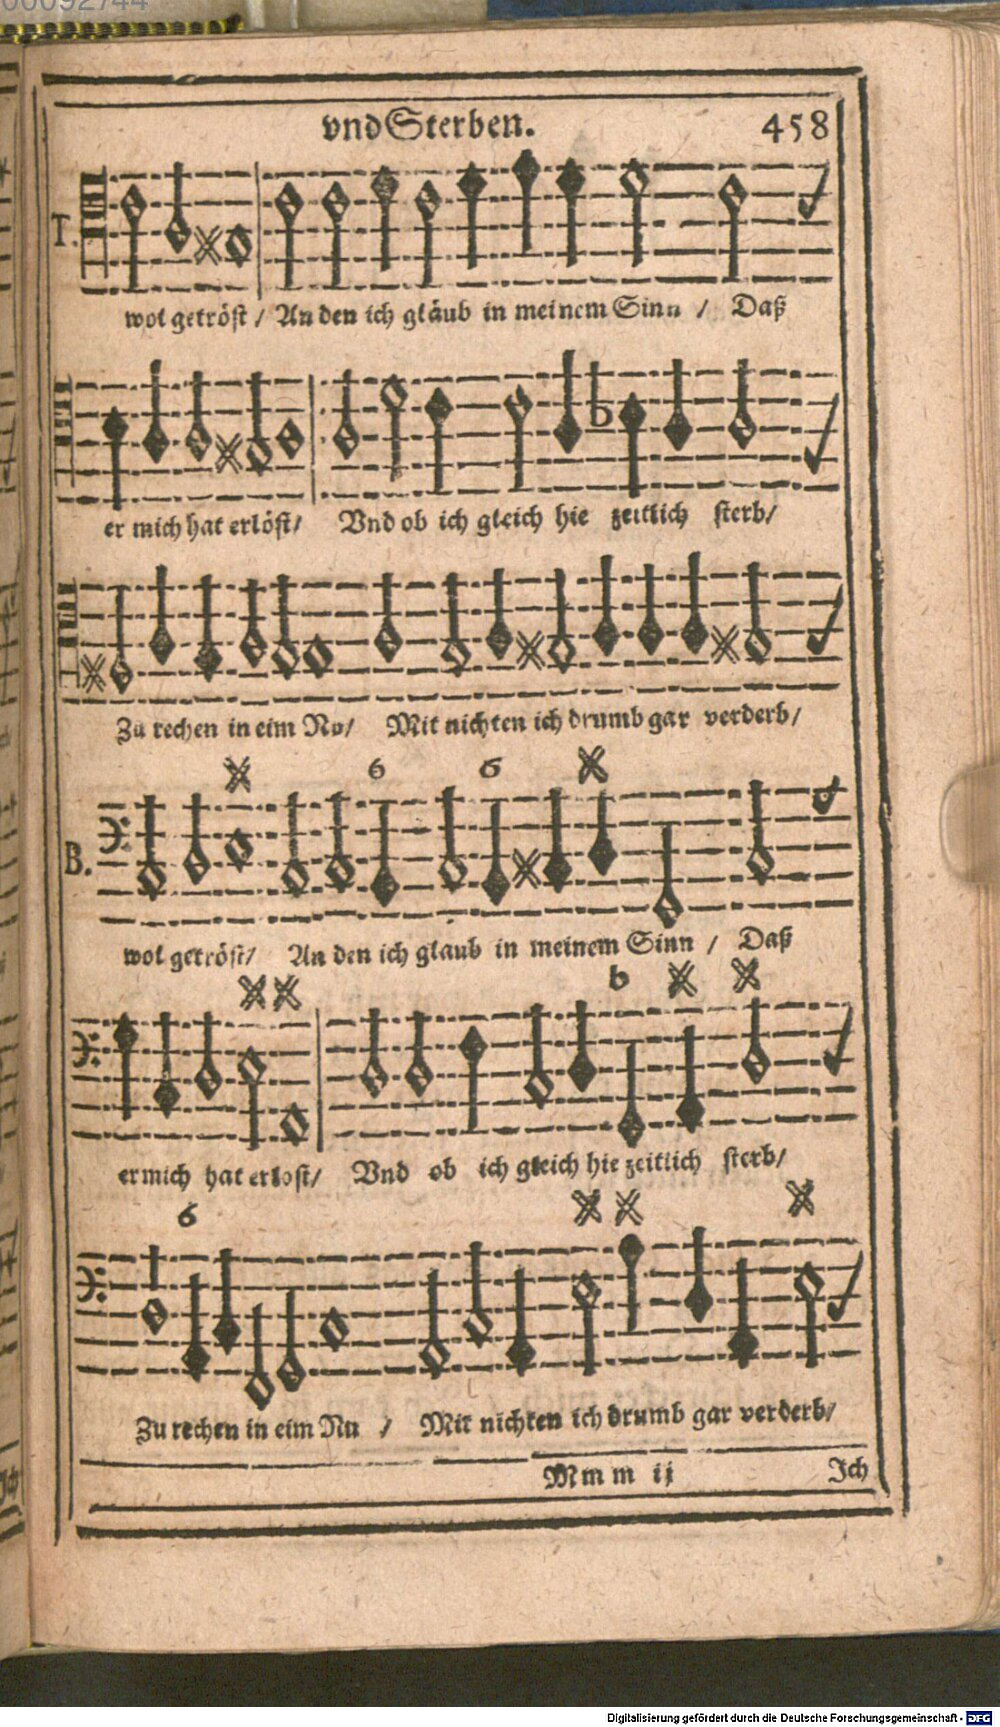 00092744
vnd Sterben. 458
T.
wol getröst / An den ich gläub in meinem Sinn / Daß
er mich hat erlöst / Vnd ob ich gleich hie zeitlich sterb /
Zu rechen in eim Nu / Mit nichten ich drumb gar verderb /
6 6
B.
wol getröst / An den ich glaub in meinem Sinn / Daß
b
er mich hat erlost / Vnd ob ich gleich hie zeitlich sterb /
6
Zu rechen in eim Nu / Mit nichten ich drumb gar verderb /
Mmm ij Ich
Digitalisierung gefördert durch die Deutsche Forschungsgemeinschaft - DFG